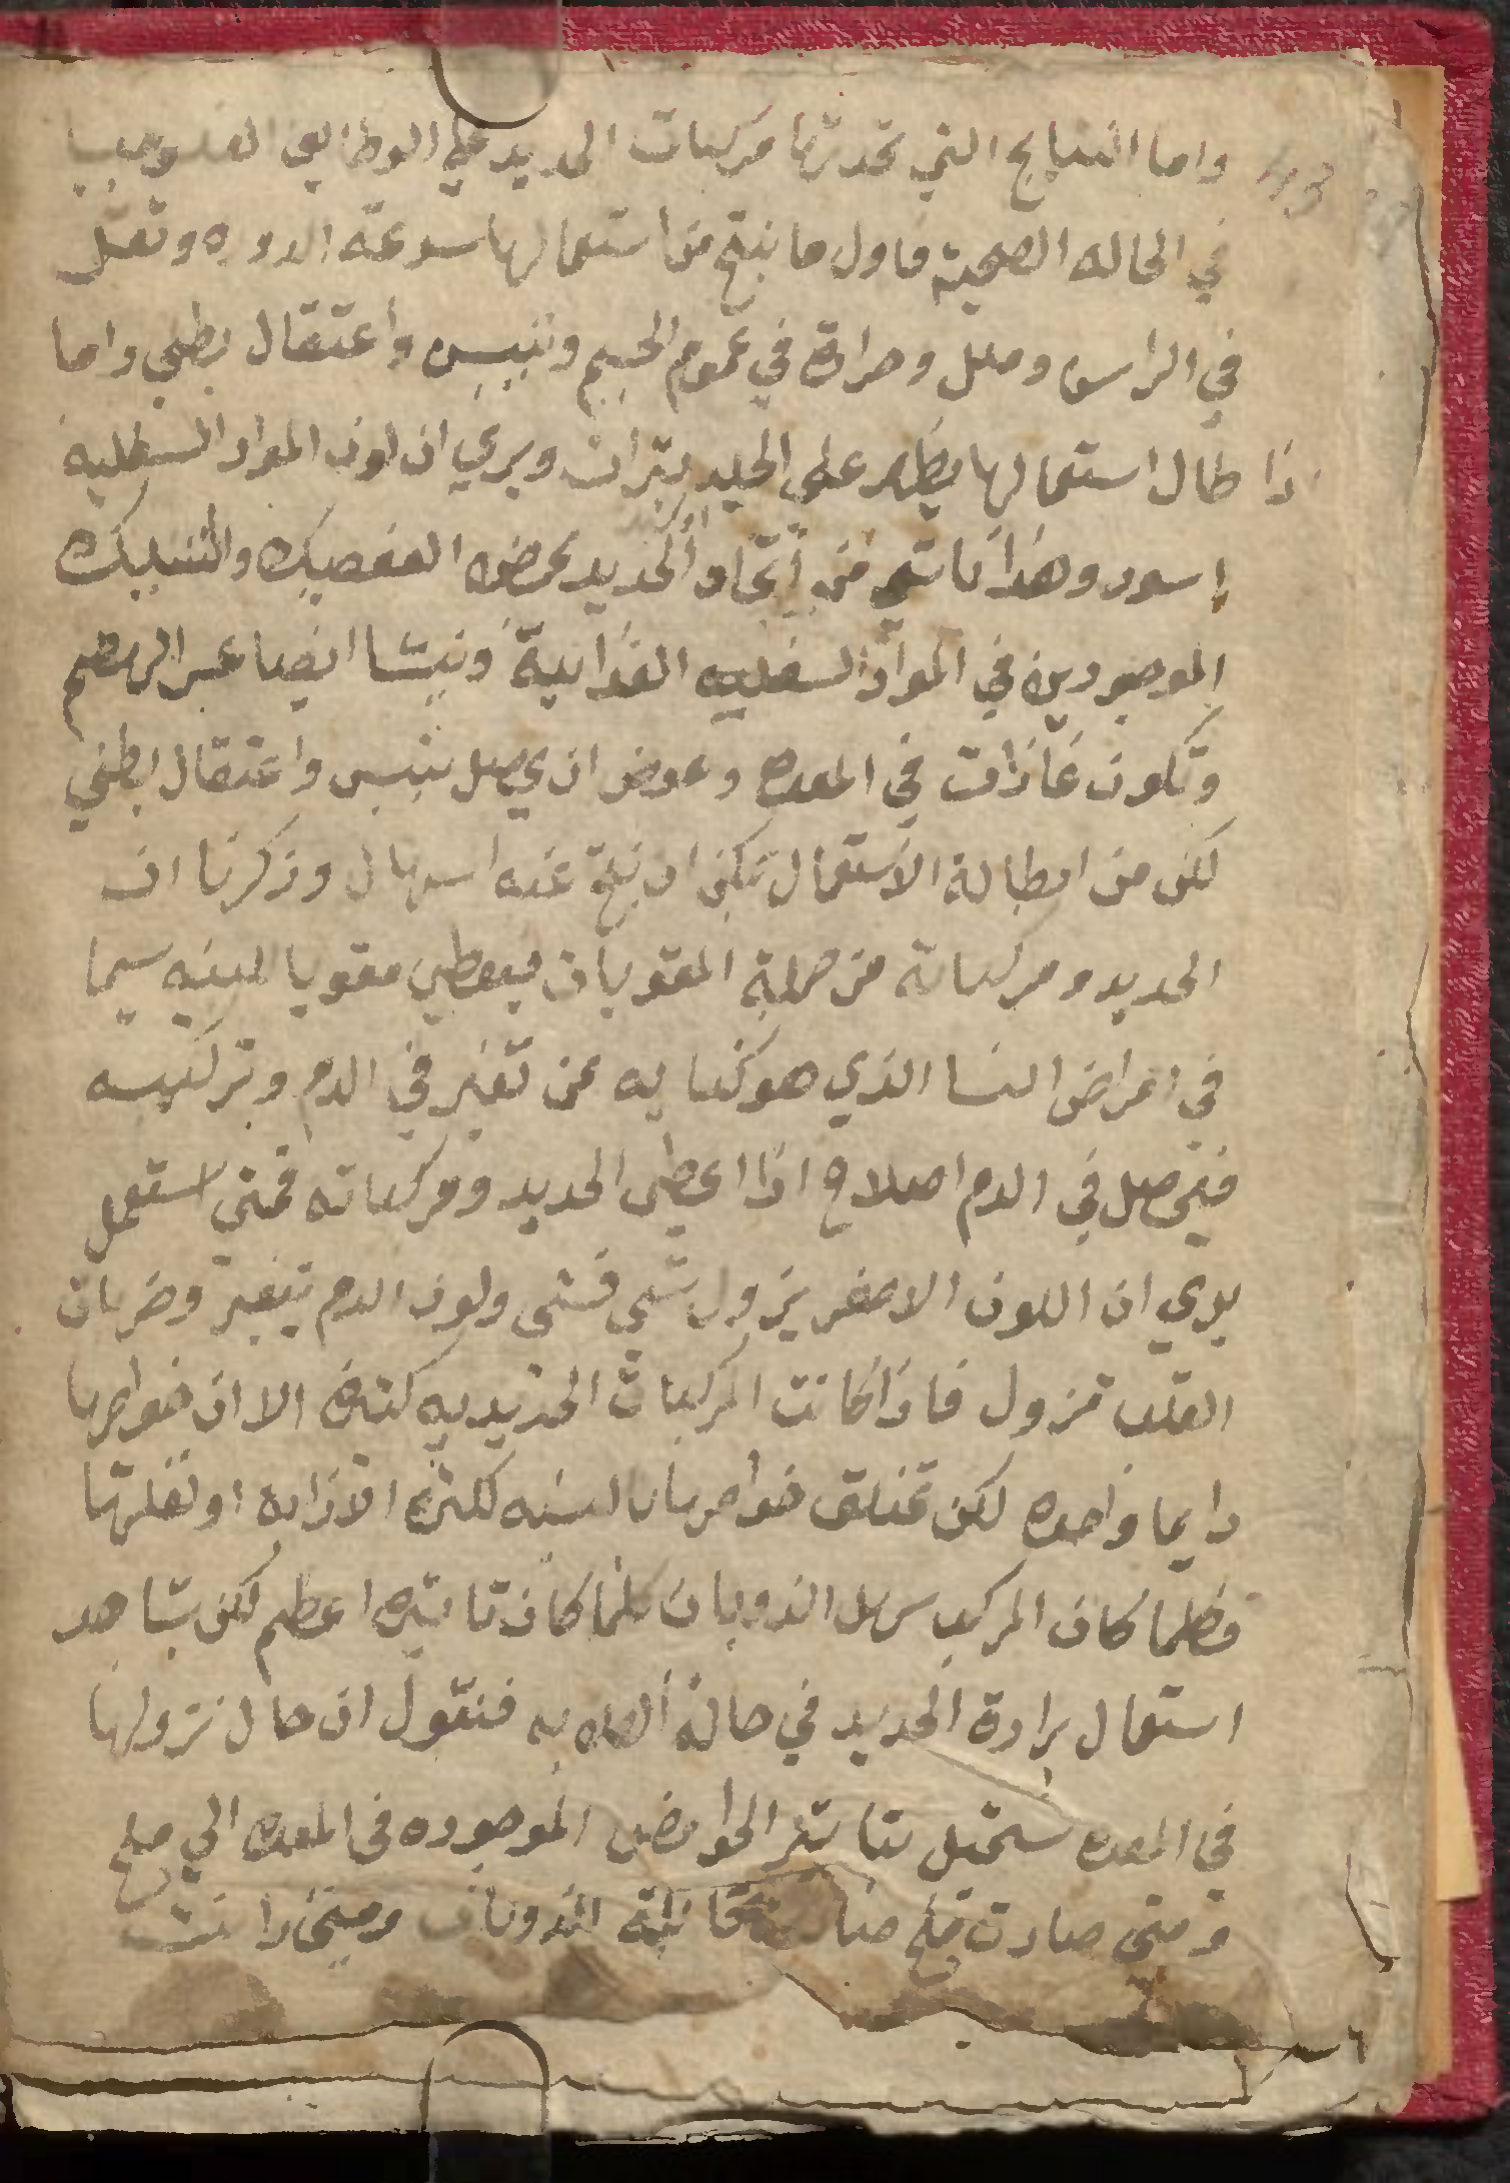 واما النتايج التي تحدثها مركبات الحديد علي الوظايف
في الحاله الصحية فاول ما ينتج من استعمالها سرعة الدوره وثقل
في الراس وملل وحرارة في عموم الجسم وتيبيس وأعتقال بطني واما
ذا طال استعمالها يظهر علي الجلد بثرات ويري ان لون المواد السفليه
إسود وهذا ناشي من إتحاد الحديد بحمض العفصيك والتنيك
الموجودين في المواد السفليه الغذائية وينشا ايضا عسر الهضم
وتكون غازات في المعده وعوض ان يحصل تيبس واعتقال بطني
لكن من اطالة الاستعمال يمكن ان ينتج عنه اسهال وذكرنا ان
الحديد ومركباته من جملة المقويات فيعطي مقويا للبنيه سيما
في امراض النسا الذي هو كنايه عن تغير في الدم وتركيبه
فيحصل في الدم اصلاح اذا اعطي الحديد ومركباته فمتي استعمل
يري ان اللون الاصفر يزول شي فشي ولون الدم يتغير وضربات
القلب تزول فاذا كانت المركبات الحديديه كثيرة الا ان خواصها
دايما واحده لكن تختلق خواصها بالنسبه لكثرة اوزانه او لقلتها
فكلما كان المركب سهل الذوبان كلما كان تاثيره اعظم لكن يشاهد
استعمال برادة الحديد في حالة فنقول ان حال نزولها
في المعده تستحيل بتاثير الحوامض الموجوده في المعده الي ملح
ومتي صارت ملح قابلة للذوبان